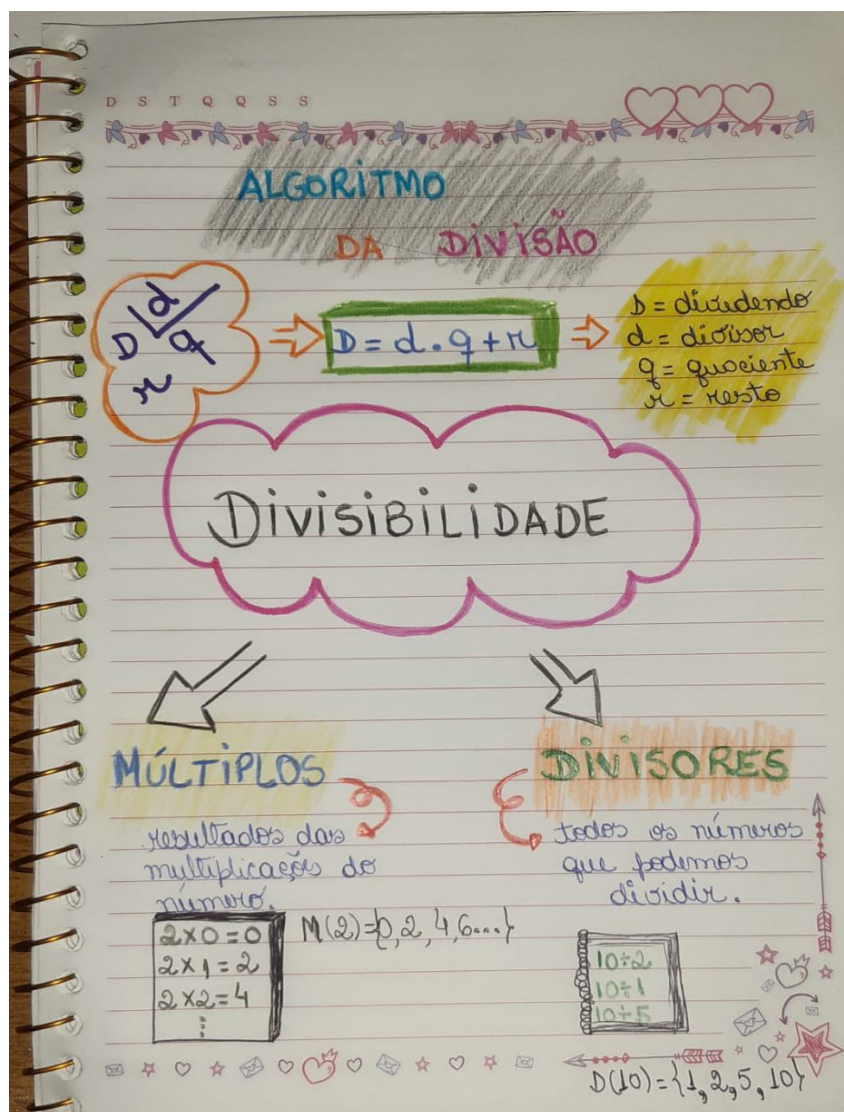 D S T Q Q S S
ALGORITMO
DA DIVISÃO
D d
r q
D = d . q + r
D = dividendo
d = divisor
q = quociente
r = resto
DIVISIBILIDADE
MÚLTIPLOS
resultados das
multiplicações do
número.
2x0=0
2x1=2
2x2=4
⋮
M(2)={0,2,4,6...}
DIVISORES
todos os números
que podemos
dividir.
10÷2
10÷1
10÷5
D(10)={1,2,5,10}